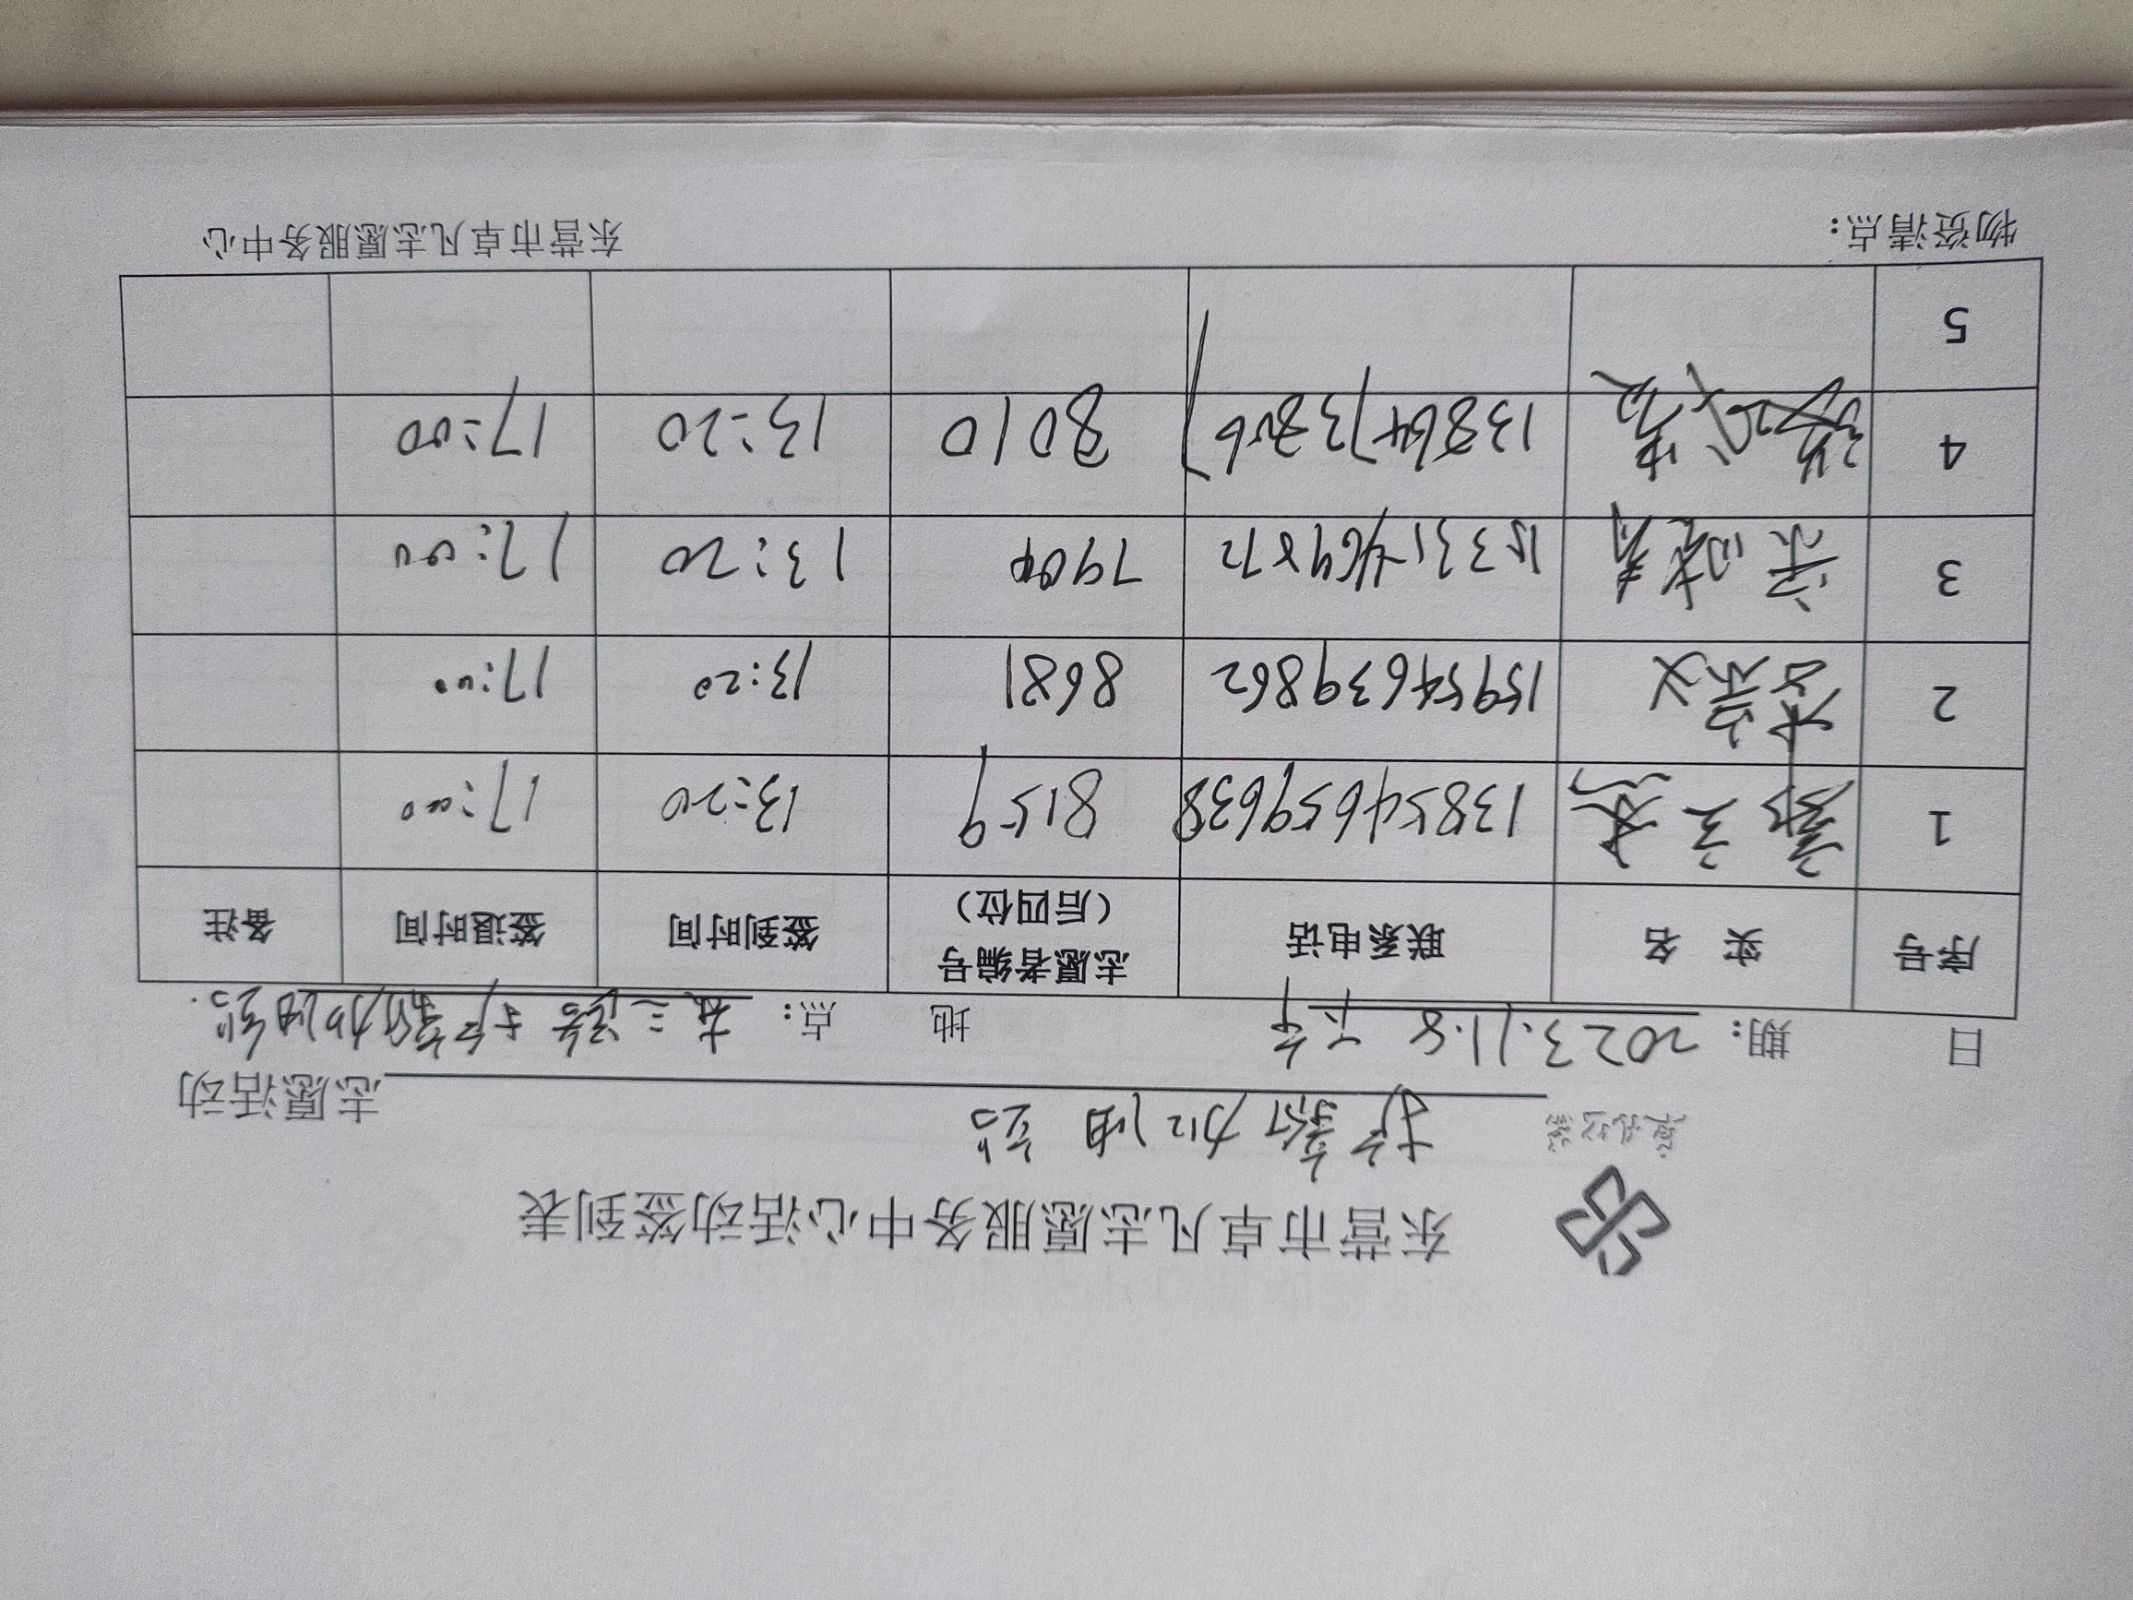 东营市卓凡志愿服务中心活动签到表
卓凡公益
护薪加油站 志愿活动
日 期：2023.11.8 下午 地 点：东三路 护薪加油站.
序号 实 名 联系电话 志愿者编号（后四位） 签到时间 签退时间 备注
1 13854659638 8159 13:20 17:00
2 15954639862 8681 13:20 17:00
3 13:20 17:00
4 8010 13:20 17:00
5
物资清点： 东营市卓凡志愿服务中心